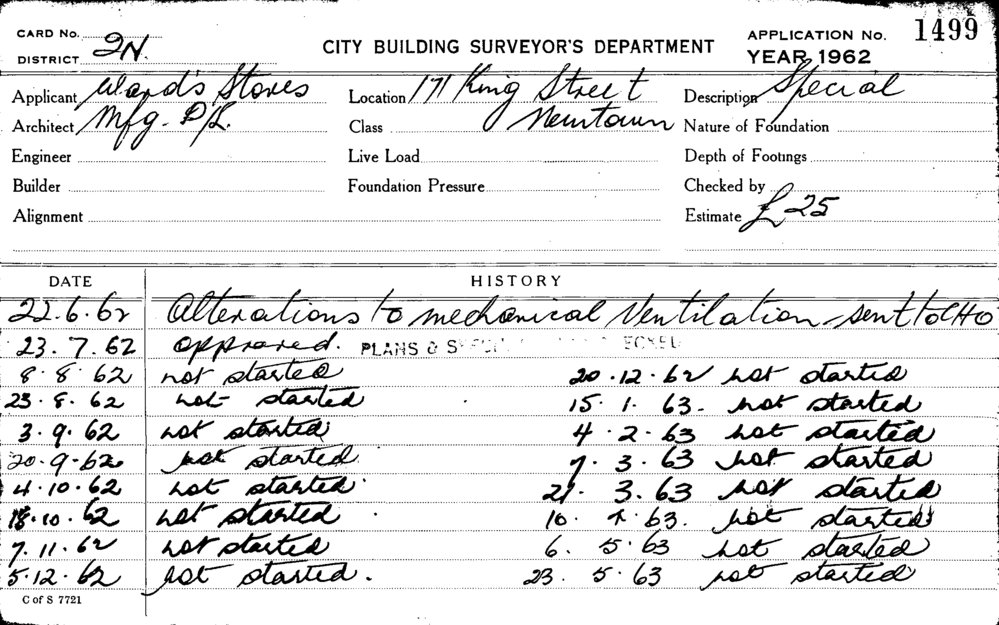 CARD No.
DISTRICT 2N.
CITY BUILDING SURVEYOR'S DEPARTMENT
APPLICATION No. 1499
YEAR 1962
Applicant Ward's Stores Location 171 King Street Description Special
Architect Mfg. P/L. Class Newtown Nature of Foundation
Engineer Live Load Depth of Footings
Builder Foundation Pressure Checked by
Alignment Estimate £25
DATE HISTORY
22.6.62 Alterations to mechanical Ventilation - sent to CHO
23.7.62 approved. PLANS &
8.8.62 not started 20.12.62 not started
23.8.62 not started 15.1.63. not started
3.9.62 not started 4.2.63 not started
20.9.62 not started 7.3.63 not started
4.10.62 not started 21.3.63 not started
18.10.62 not started 10. .63. not started
7.11.62 not started 6.5.63 not started
5.12.62 not started. 23.5.63 not started
C of S 7721